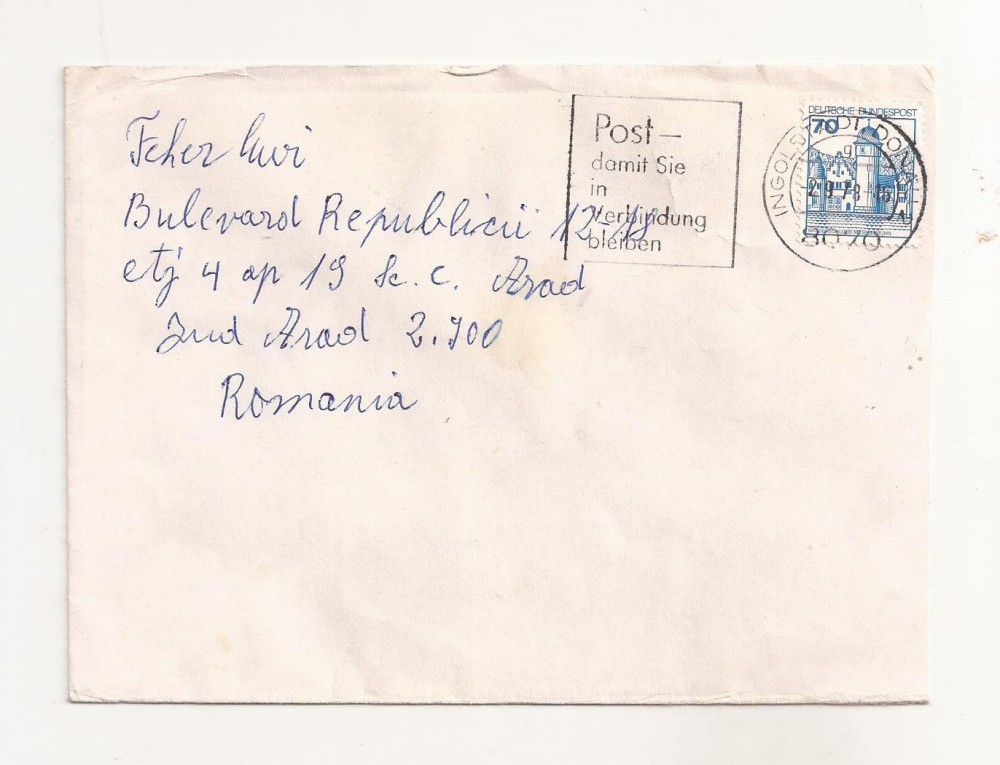 Feher
Bulevard Republicii 12-18
etj 4 ap 19 Sc. C. Arad
Jud Arad 2.900
Romania
Post –
damit Sie
in
Verbindung
bleiben
DEUTSCHE BUNDESPOST
70
INGOLSTADT, DONAU
8070